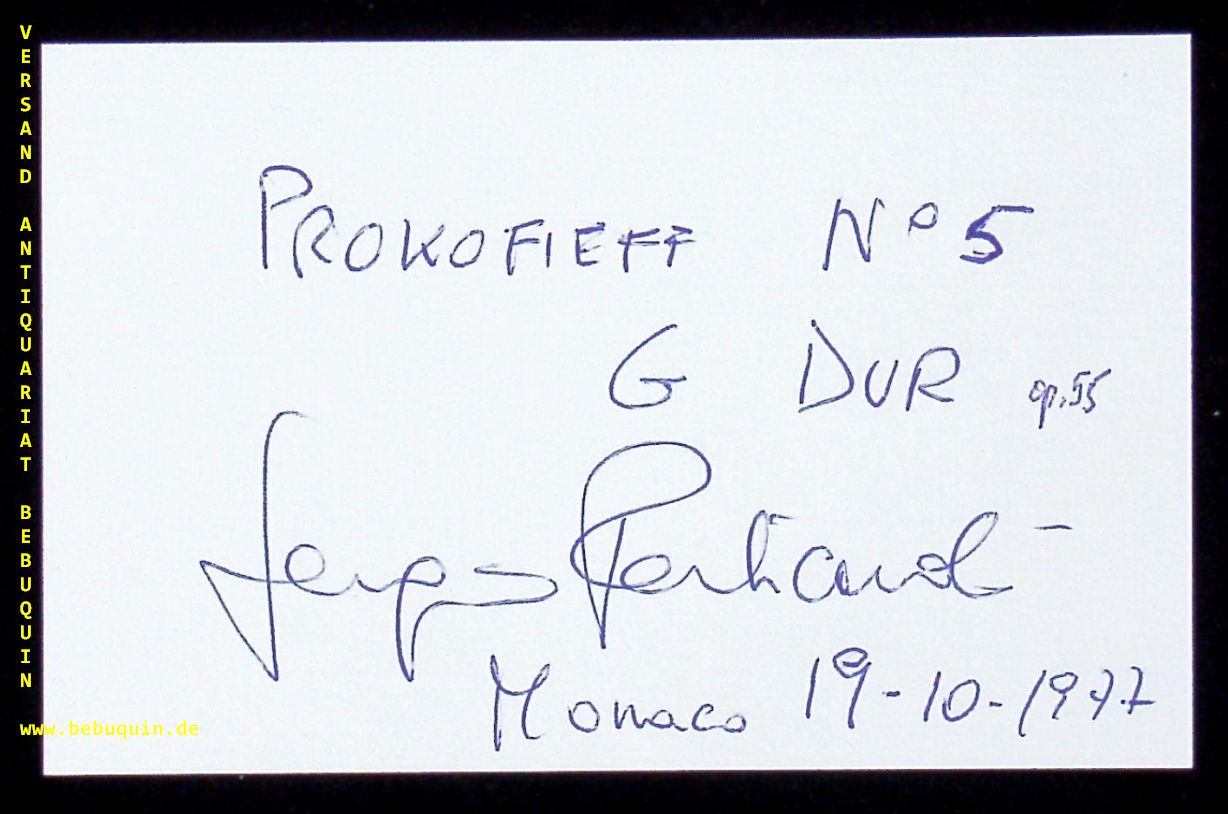 VERSAND ANTIQUARIAT BEBUQUIN
PROKOFIEFF Nº 5
G DUR op.55
Sergio Perticaroli
Monaco 19-10-1977
www.bebuquin.de